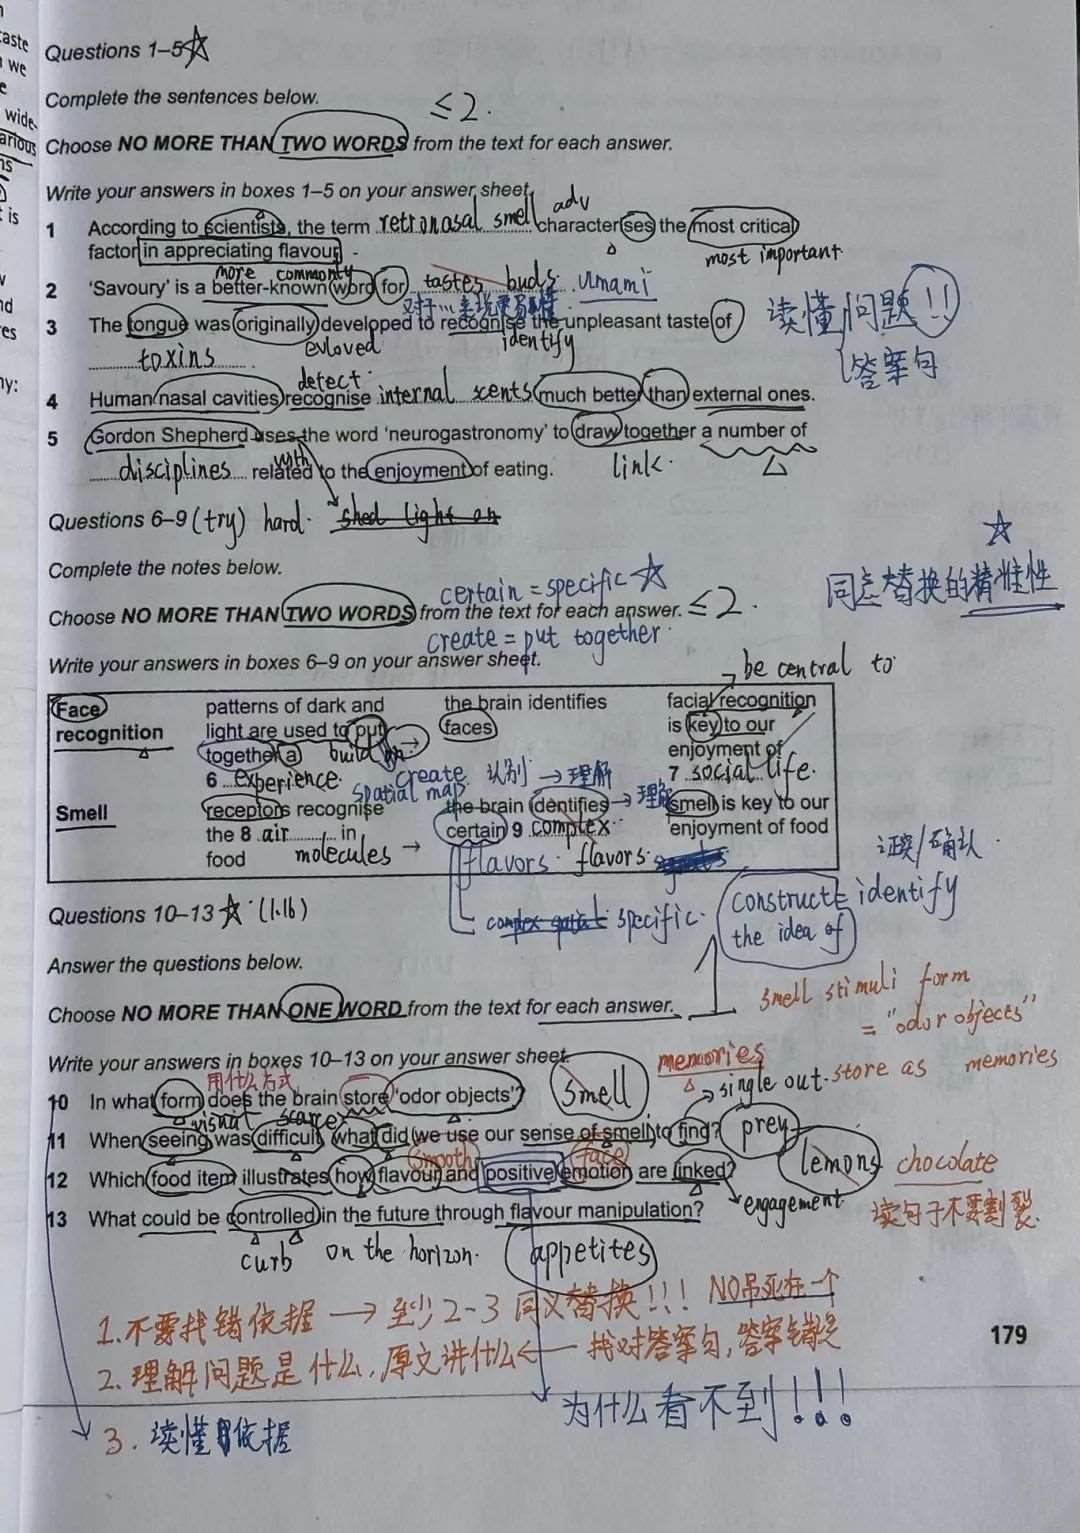 caste
we
e
wide-
arious
ns
t is
nd
res
ny:
Questions 1–5☆
Complete the sentences below.
≤2.
Choose NO MORE THAN TWO WORDS from the text for each answer.
Write your answers in boxes 1–5 on your answer sheet.
adv
1 According to scientists, the term retronasal smell characterises the most critical
factor in appreciating flavour.
most important.
more commonly
2 'Savoury' is a better-known word for tastes buds. umami
读懂问题!!
3 The tongue was originally developed to recognise the unpleasant taste of
toxins evloved identify
答案句
detect.
4 Human nasal cavities recognise internal scents much better than external ones.
5 Gordon Shepherd uses the word 'neurogastronomy' to draw together a number of
disciplines related to the enjoyment of eating.
with link.
Questions 6–9 (try) hard. shed light on
Complete the notes below.
certain = specific ☆
☆
同意替换的精准性
Choose NO MORE THAN TWO WORDS from the text for each answer. ≤2.
create = put together.
Write your answers in boxes 6–9 on your answer sheet.
be central to
Face recognition
patterns of dark and light are used to put together a
build on
6 experience.
create
spatial map
the brain identifies faces
认别 → 理解
facial recognition is key to our enjoyment of
7 social life.
Smell
receptors recognise the 8 air in food
molecules →
the brain identifies certain 9 complex
→ 理解
flavors. flavors.
smell is key to our enjoyment of food
证实/确认.
specific.
construct = identify
the idea of
Questions 10–13 ☆ (1.16)
Answer the questions below.
Choose NO MORE THAN ONE WORD from the text for each answer.
smell stimuli form
= "odor objects"
store as memories
Write your answers in boxes 10–13 on your answer sheet.
用什么方式
memories
10 In what form does the brain store 'odor objects'? smell
single out.
visual scarce
11 When seeing was difficult, what did we use our sense of smell to find? prey
smooth face
12 Which food item illustrates how flavour and positive emotion are linked? lemons chocolate
engagement.
读句子不要割裂.
13 What could be controlled in the future through flavour manipulation?
curb on the horizon. appetites
1.不要找错依据 → 至少2-3同义替换!!! NO吊死在一个
179
2.理解问题是什么,原文讲什么 ← 找对答案句,答案错误
为什么看不到!!!
3.读懂依据